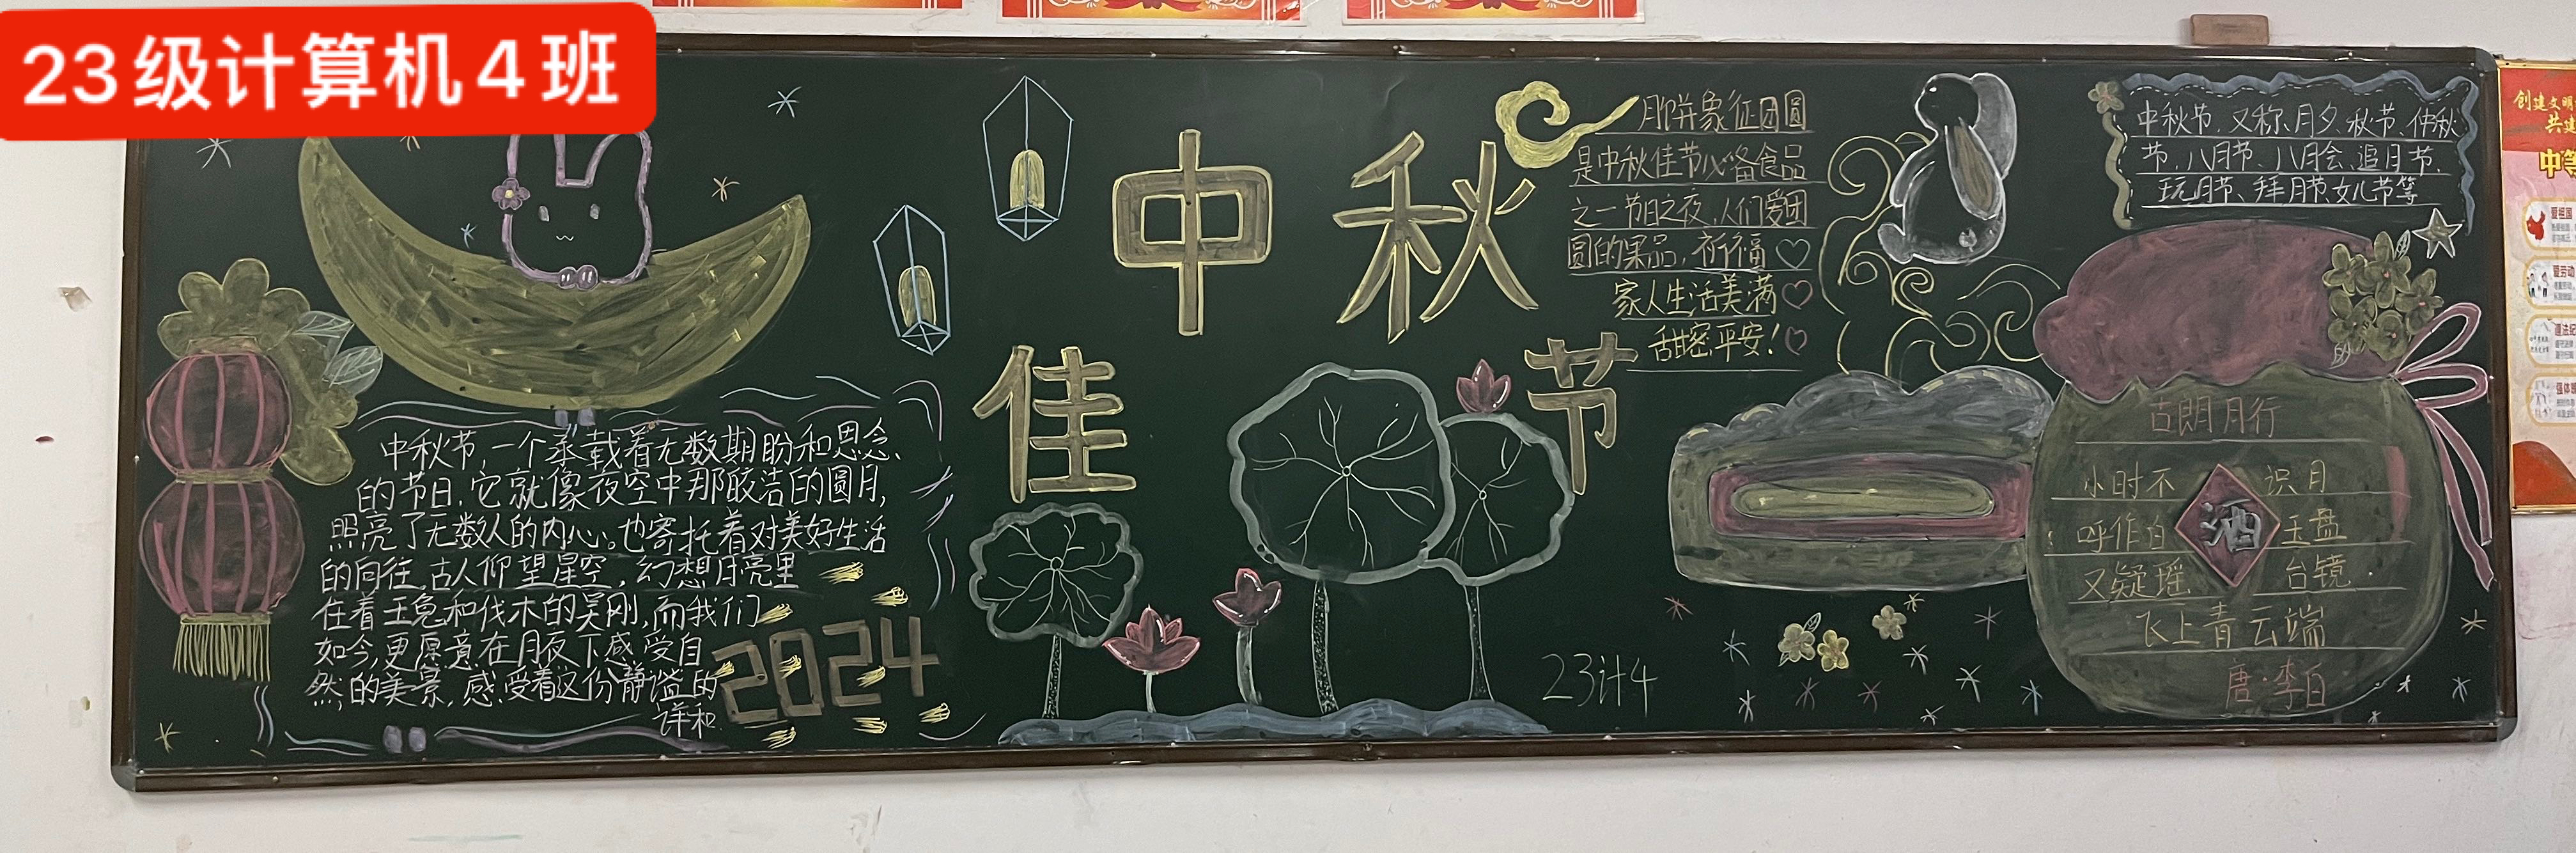 23级计算机4班
中秋
佳节
中秋节,一个承载着无数期盼和思念、
的节日,它就像夜空中那皎洁的圆月,
照亮了无数人的内心。也寄托着对美好生活
的向往,古人仰望星空,幻想月亮里
住着玉兔和伐木的吴刚,而我们
如今,更愿意在月夜下感受自
然的美景,感受着这份静谧的
详和.
2024
月饼象征团圆
是中秋佳节必备食品
之一节日之夜,人们爱团
圆的果品,祈福
家人生活美满
甜密平安!
23计4
中秋节,又称、月夕、秋节、仲秋
节、八月节、八月会、追月节、
玩月节、拜月节、女儿节等
古朗月行
小时不识月
呼作白玉盘
又疑瑶台镜
飞上青云端
唐·李白
酒
创建文明
共建
中等
爱祖国
爱劳动